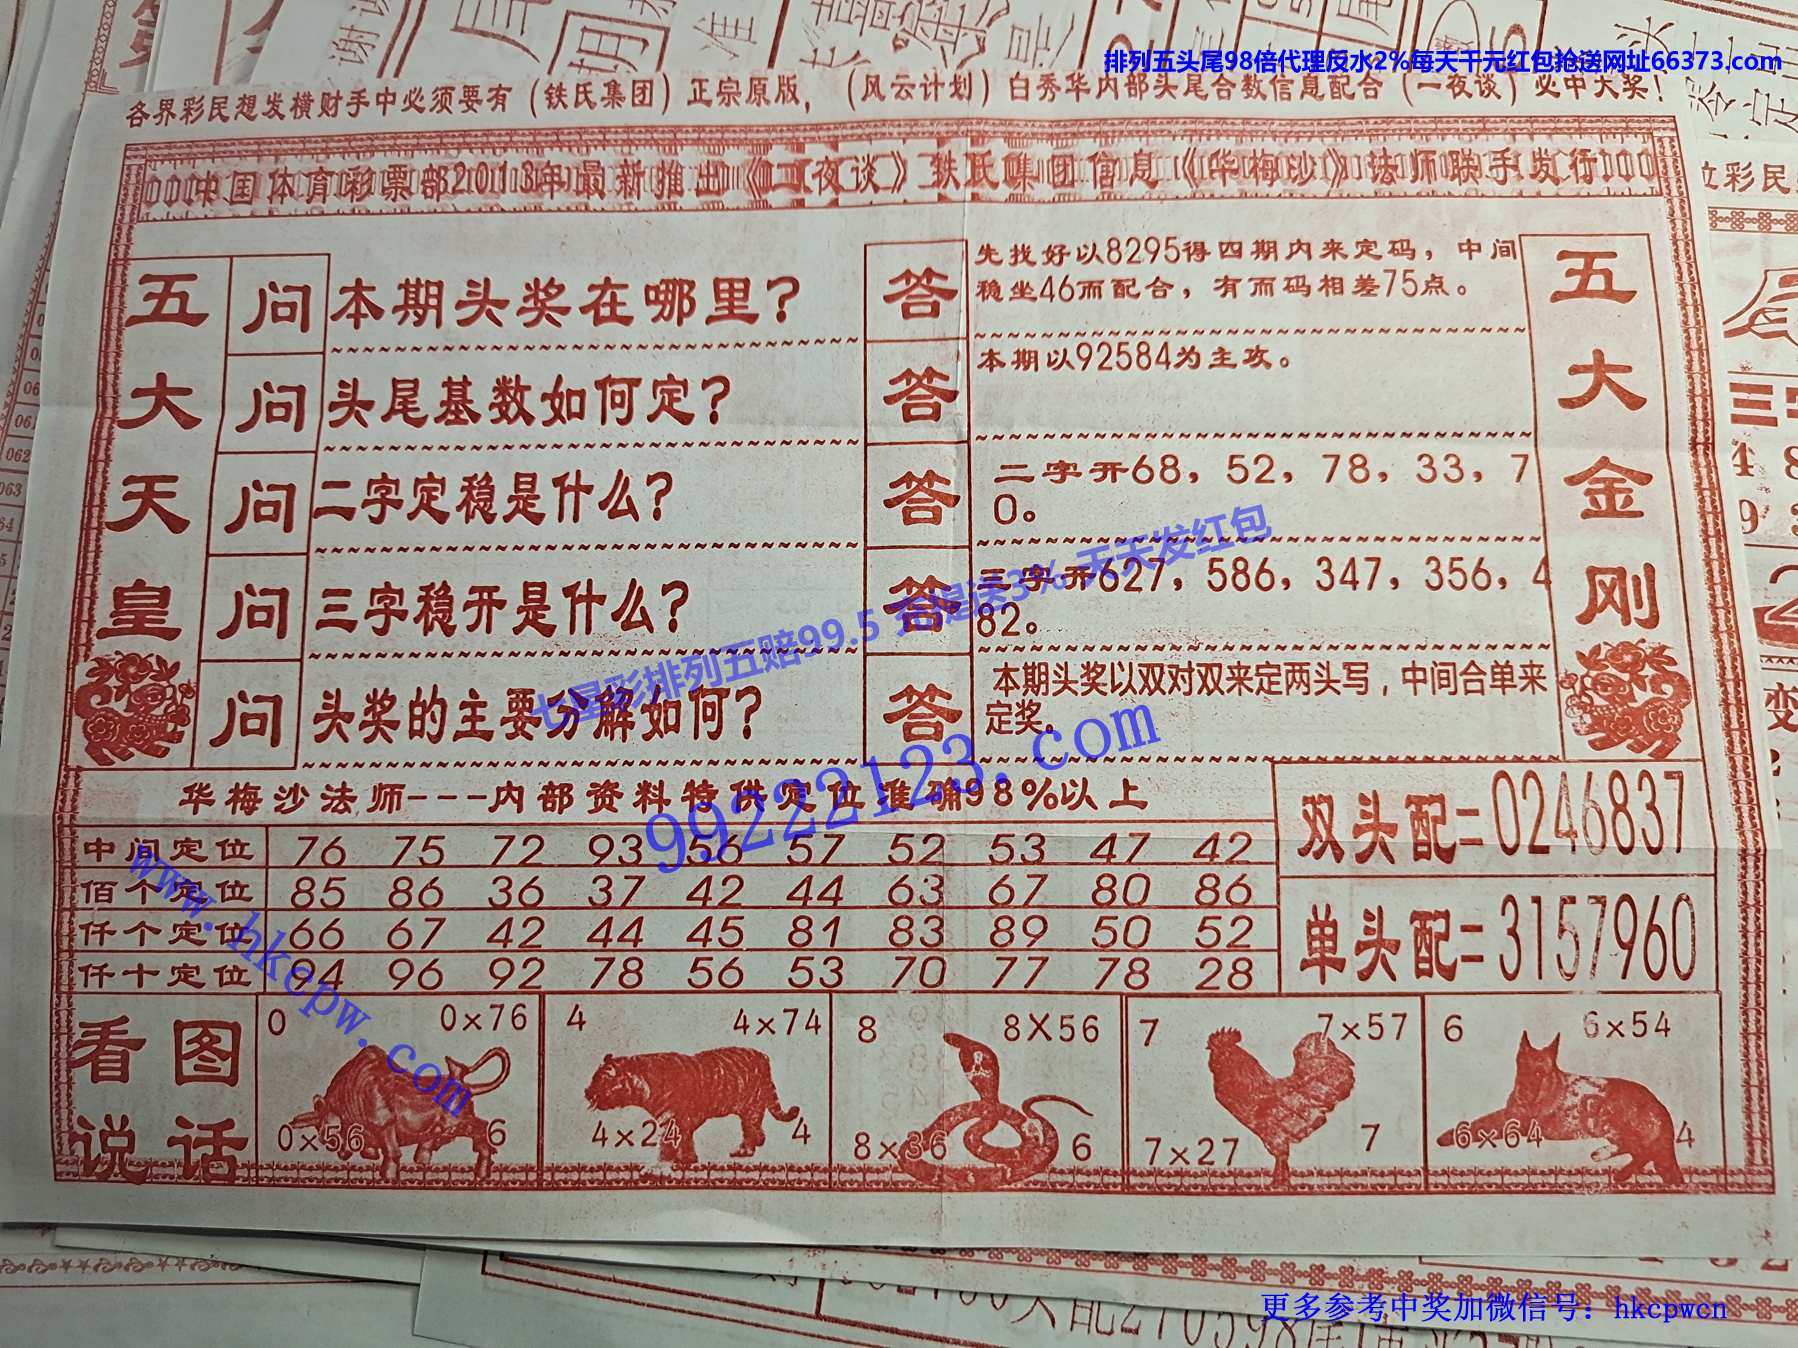 排列五头尾98倍代理反水2%每天千元红包抢送网址66373.com
各界彩民想发横财手中必须要有（铁氏集团）正宗原版，（风云计划）白秀华内部头尾合数信息配合（一夜谈）必中大奖！
中国体育彩票部2013年最新推出《一夜谈》铁氏集团信息《华梅沙》法师联手发行
五大天皇
问 本期头奖在哪里？
答 先找好以8295得四期内来定码，中间
稳坐46而配合，有而码相差75点。
问 头尾基数如何定？
答 本期以92584为主攻。
问 二字定稳是什么？
答 二字开68，52，78，33，7
0。
问 三字稳开是什么？
答 三字开627，586，347，356，4
82。
问 头奖的主要分解如何？
答 本期头奖以双对双来定两头写，中间合单来
定奖。
五大金刚
七星彩排列五赔99.5 充提送3% 天天发红包
99222123.com
华梅沙法师---内部资料特供定位准确98%以上
中间定位 76 75 72 93 56 57 52 53 47 42
佰个定位 85 86 36 37 42 44 63 67 80 86
仟个定位 66 67 42 44 45 81 83 89 50 52
仟十定位 94 96 92 78 56 53 70 77 78 28
双头配=0246837
单头配=3157960
www.hkcpw.com
看图
说话
0 0×76
0×56 6
4 4×74
4×24 4
8 8X56
8×36 6
7 7×57
7×27 7
6 6×54
6×64 4
更多参考中奖加微信号：hkcpwcn